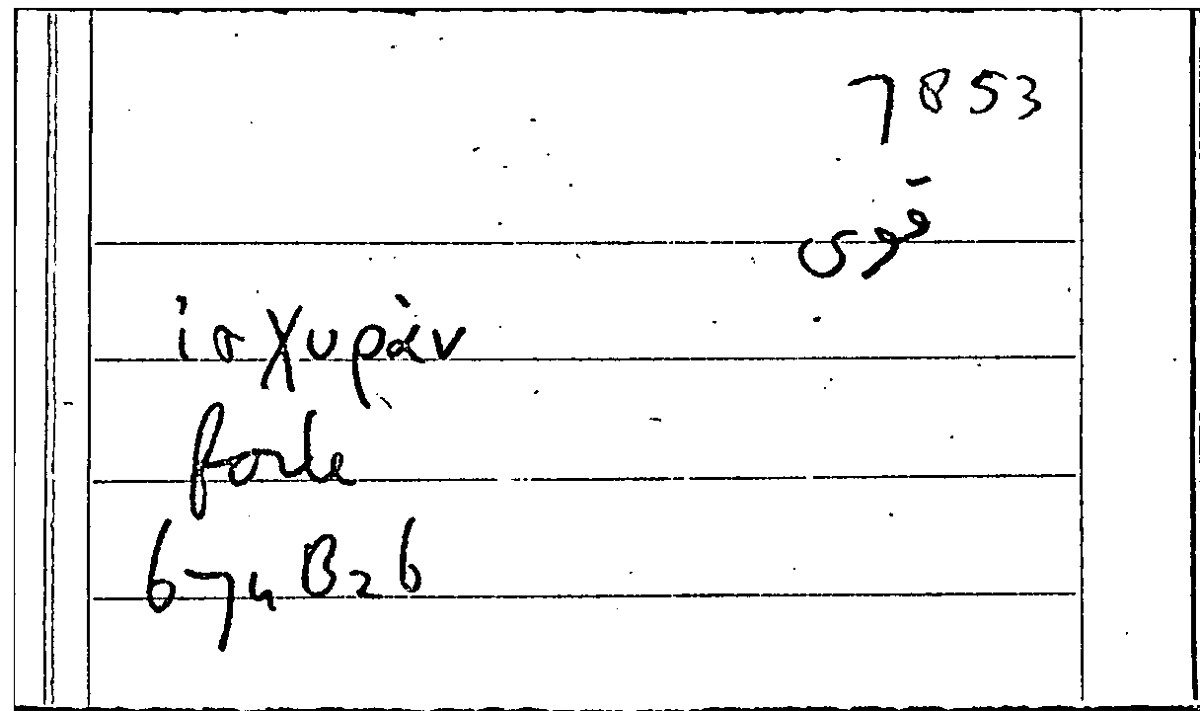 7853
قوى
ἰσχυρὰν
forte
674 B26